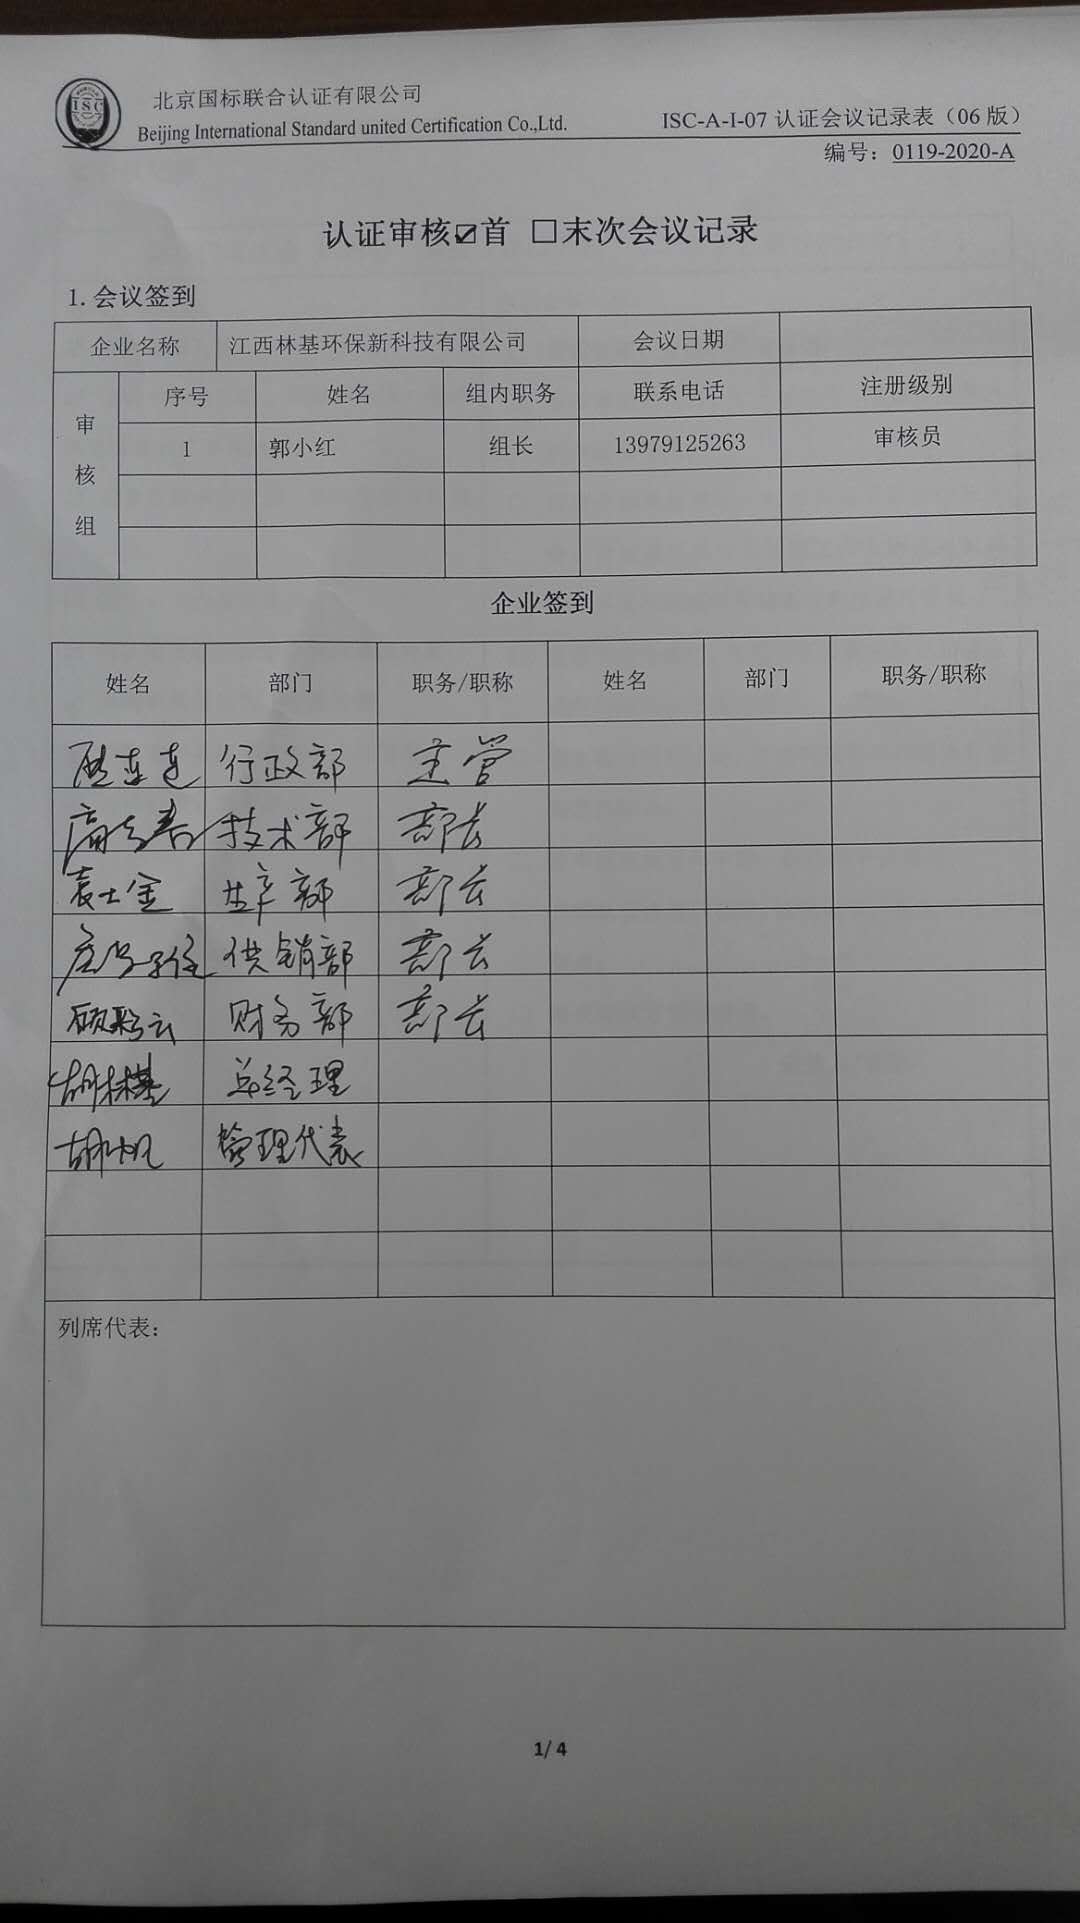 ISC
北京国标联合认证有限公司
Beijing International Standard united Certification Co.,Ltd.
ISC-A-I-07 认证会议记录表（06 版）
编号：0119-2020-A
认证审核☑首 □末次会议记录
1. 会议签到
企业名称 江西林基环保新科技有限公司 会议日期
审核组 序号 姓名 组内职务 联系电话 注册级别
1 郭小红 组长 13979125263 审核员
企业签到
姓名 部门 职务/职称 姓名 部门 职务/职称
行政部 主管
技术部 部长
袁士金 生产部 部长
供销部 部长
顾彩云 财务部 部长
胡林基 总经理
胡帆 管理代表
列席代表：
1/ 4